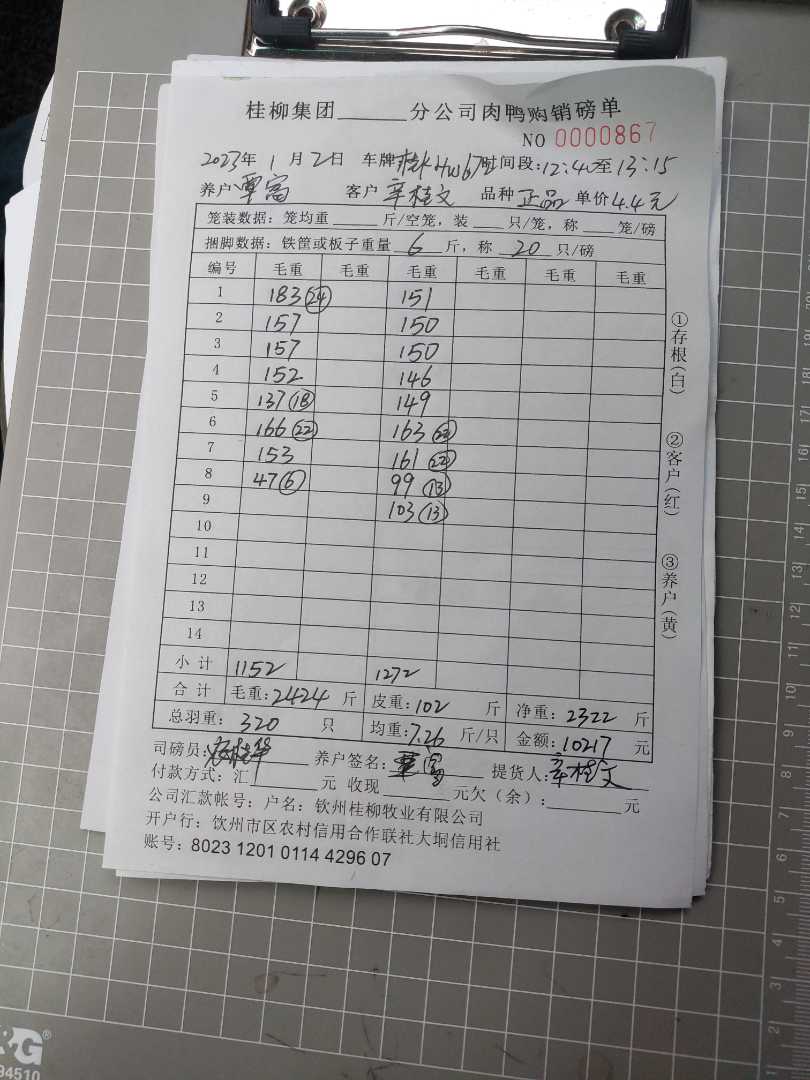 桂柳集团______分公司肉鸭购销磅单
NO 0000867
2023年 1 月 2日 车牌 时间段:12:40至13:15
养户 覃富 客户 辛桂文 品种 正品 单价4.4元
笼装数据: 笼均重____斤/空笼, 装___只/笼, 称___笼/磅
捆脚数据: 铁筐或板子重量 6 斤, 称 20 只/磅
编号 毛重 毛重 毛重 毛重 毛重 毛重
1 183(24) 151
2 157 150
3 157 150
4 152 146
5 137(18) 149
6 166(22) 163(22)
7 153 161(22)
8 47(6) 99(13)
9 103(13)
10
11
12
13
14
小计 1152 1272
合计 毛重:2424 斤 皮重:102 斤 净重:2322 斤
总羽重: 320 只 均重:7.26 斤/只 金额:10217 元
司磅员: 养户签名:覃富 提货人:辛桂文
付款方式: 汇______元 收现______元欠(余):______元
公司汇款帐号: 户名: 钦州桂柳牧业有限公司
开户行: 饮州市区农村信用合作联社大垌信用社
账号: 8023 1201 0114 4296 07
①存根(白)
②客户(红)
③养户(黄)
&G
94510